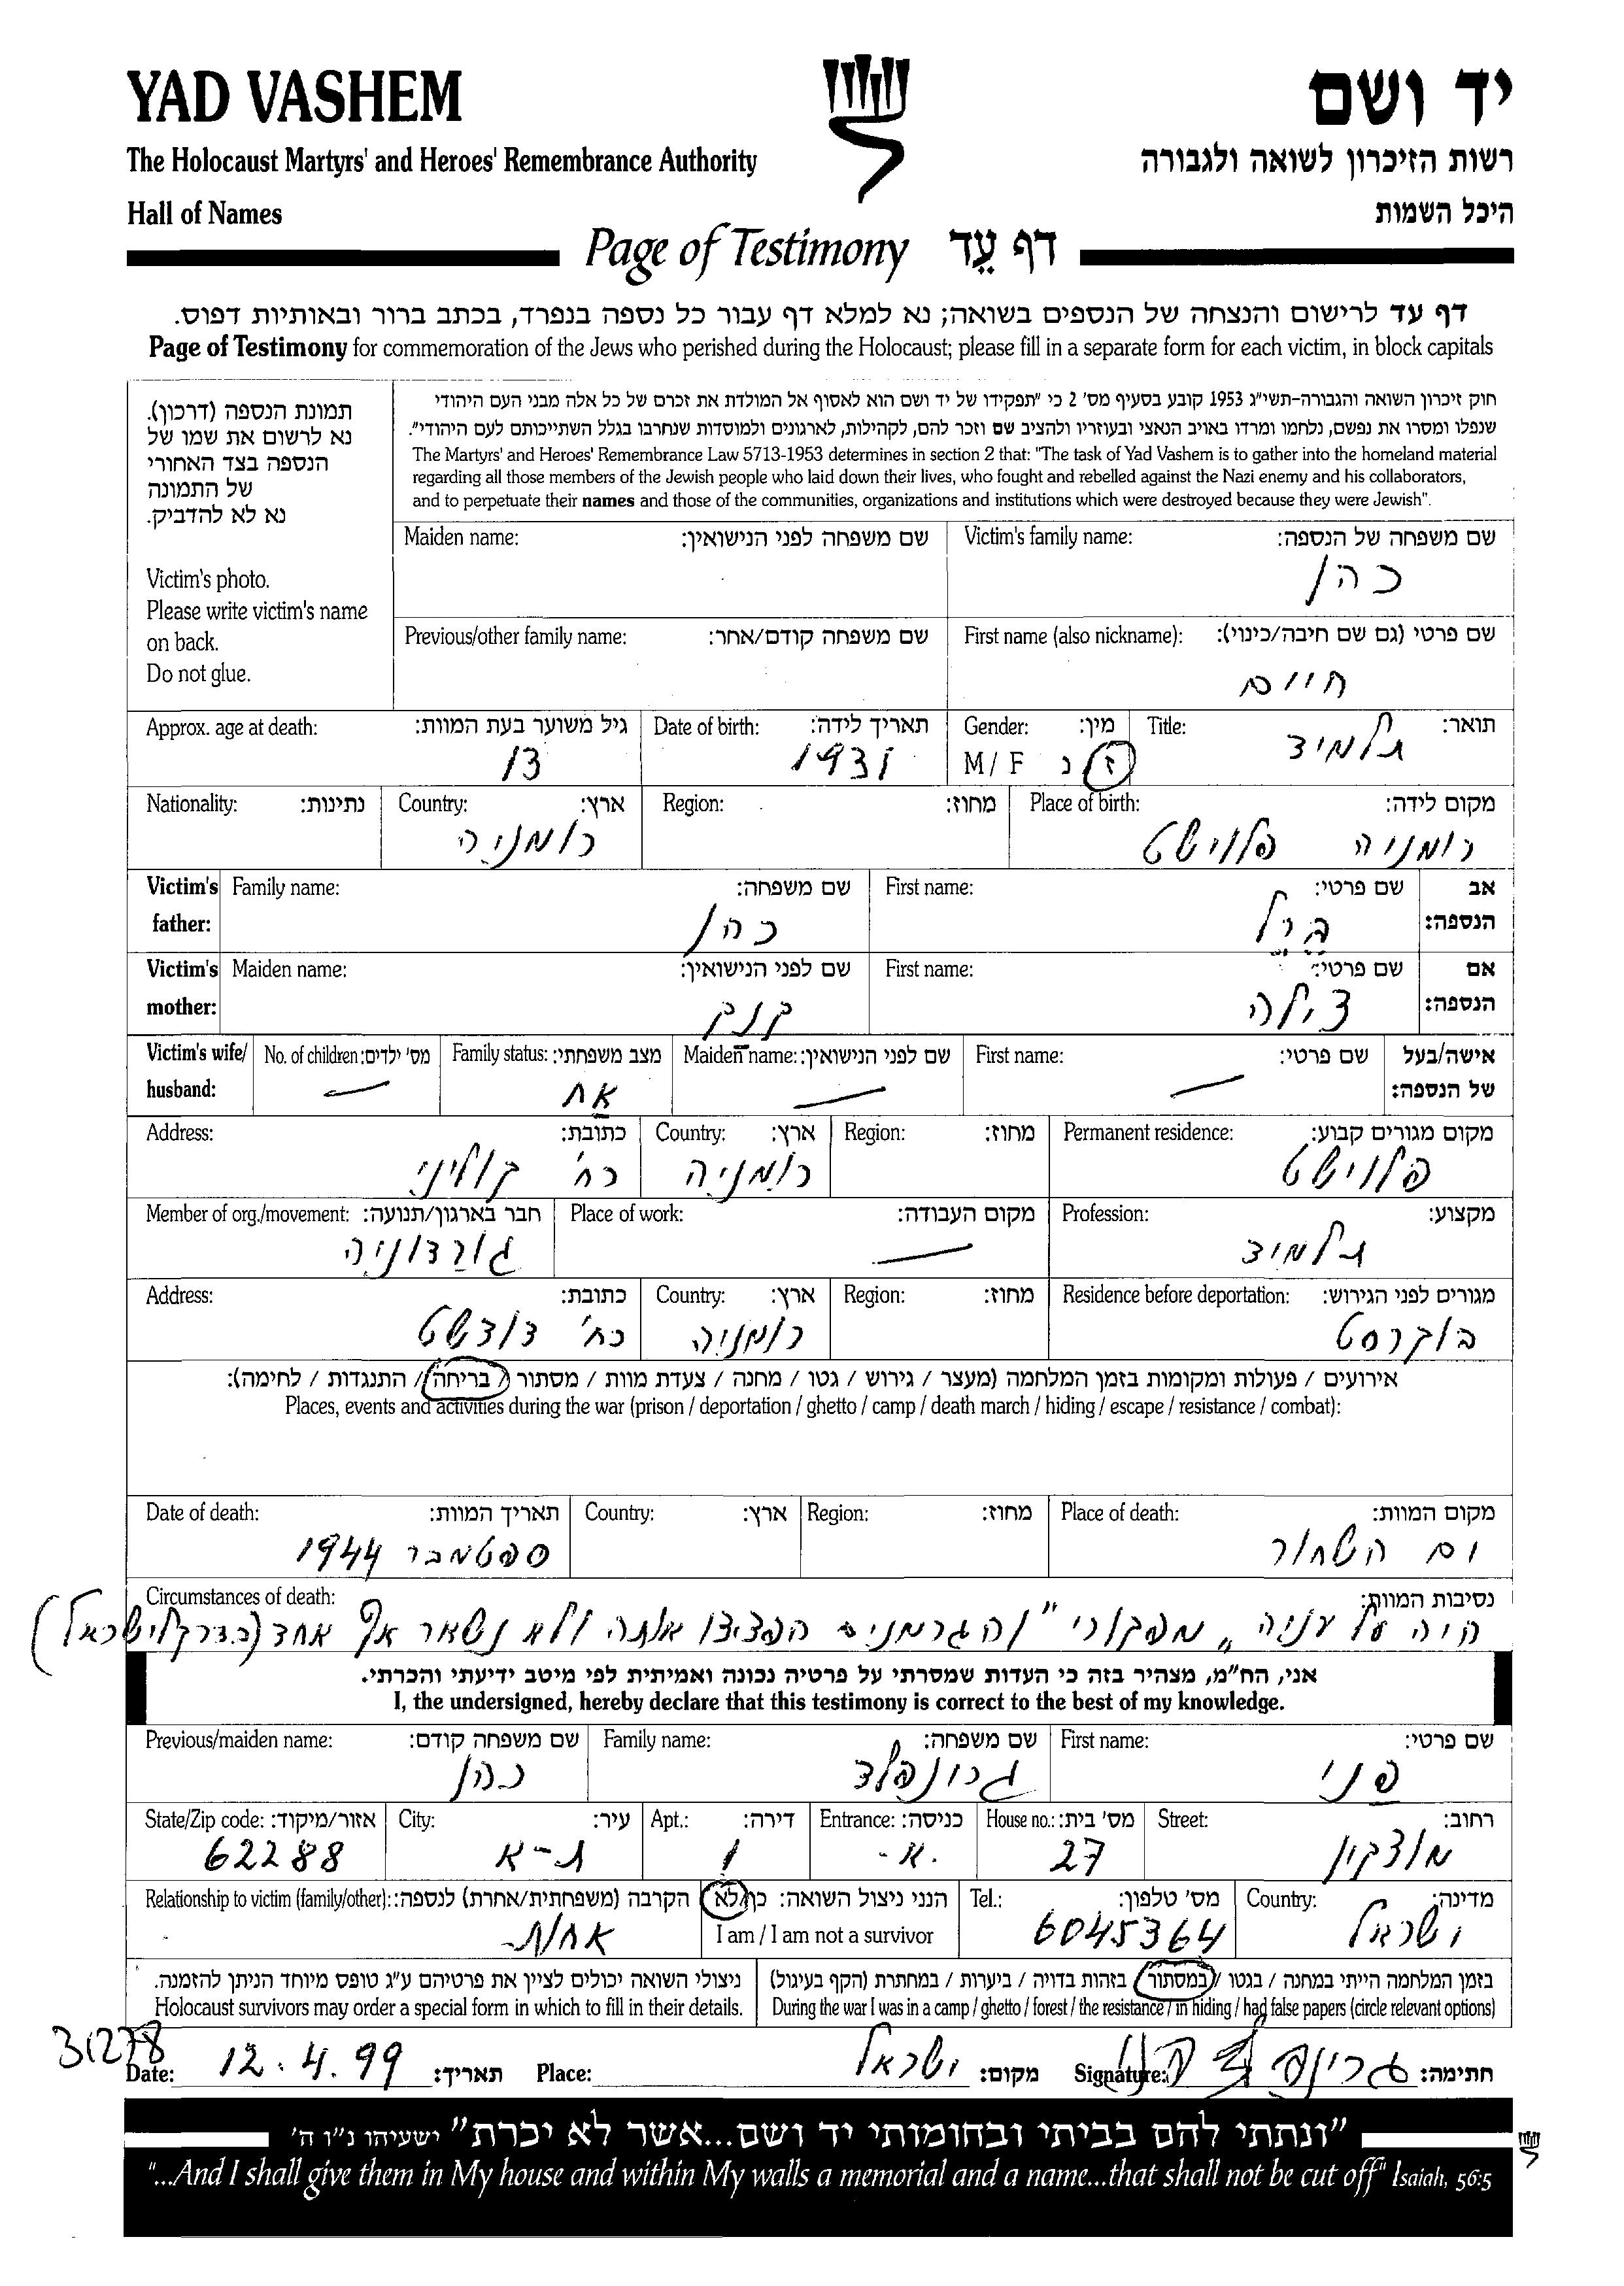 YAD VASHEM
יד ושם
The Holocaust Martyrs' and Heroes' Remembrance Authority
רשות הזיכרון לשואה ולגבורה
Hall of Names
היכל השמות
Page of Testimony דף עֵד
דף עד לרישום והנצחה של הנספים בשואה; נא למלא דף עבור כל נספה בנפרד, בכתב ברור ובאותיות דפוס.
Page of Testimony for commemoration of the Jews who perished during the Holocaust; please fill in a separate form for each victim, in block capitals
תמונת הנספה (דרכון).
נא לרשום את שמו של
הנספה בצד האחורי
של התמונה
נא לא להדביק.
Victim's photo.
Please write victim's name
on back.
Do not glue.
חוק זיכרון השואה והגבורה-תשי"ג 1953 קובע בסעיף מס' 2 כי "תפקידו של יד ושם הוא לאסוף אל המולדת את זכרם של כל אלה מבני העם היהודי
שנפלו ומסרו את נפשם, נלחמו ומרדו באויב הנאצי ובעוזריו ולהציב שם וזכר להם, לקהילות, לארגונים ולמוסדות שנחרבו בגלל השתייכותם לעם היהודי".
The Martyrs' and Heroes' Remembrance Law 5713-1953 determines in section 2 that: "The task of Yad Vashem is to gather into the homeland material
regarding all those members of the Jewish people who laid down their lives, who fought and rebelled against the Nazi enemy and his collaborators,
and to perpetuate their names and those of the communities, organizations and institutions which were destroyed because they were Jewish".
Victim's family name: שם משפחה של הנספה:
כהן
Maiden name: שם משפחה לפני הנישואין:
First name (also nickname): שם פרטי (גם שם חיבה/כינוי):
חיים
Previous/other family name: שם משפחה קודם/אחר:
Title: תואר:
תלמיד
Gender: מין:
M / F ז נ
Date of birth: תאריך לידה:
1931
Approx. age at death: גיל משוער בעת המוות:
13
Place of birth: מקום לידה:
רומניה פלוישט
Region: מחוז:
Country: ארץ:
רומניה
Nationality: נתינות:
Victim's father: אב הנספה:
First name: שם פרטי:
ברל
Family name: שם משפחה:
כהן
Victim's mother: אם הנספה:
First name: שם פרטי:
צילה
Maiden name: שם לפני הנישואין:
Victim's wife/ husband: אישה/בעל של הנספה:
First name: שם פרטי:
—
Maiden name: שם לפני הנישואין:
—
Family status: מצב משפחתי:
אח
No. of children: מס' ילדים:
—
Permanent residence: מקום מגורים קבוע:
פלוישט
Region: מחוז:
Country: ארץ:
רומניה
Address: כתובת:
רח' קוליני
Profession: מקצוע:
תלמיד
Place of work: מקום העבודה:
—
Member of org./movement: חבר בארגון/תנועה:
גורדוניה
Residence before deportation: מגורים לפני הגירוש:
בוקרסט
Region: מחוז:
Country: ארץ:
רומניה
Address: כתובת:
רח' דודשט
אירועים / פעולות ומקומות בזמן המלחמה (מעצר / גירוש / גטו / מחנה / צעדת מוות / מסתור / בריחה / התנגדות / לחימה):
Places, events and activities during the war (prison / deportation / ghetto / camp / death march / hiding / escape / resistance / combat):
Place of death: מקום המוות:
ים השחור
Region: מחוז:
Country: ארץ:
Date of death: תאריך המוות:
ספטמבר 1944
Circumstances of death: נסיבות המוות:
היה על עניה "מפקורי" והגרמנים הפציצו אותה ולא נשאר אף אחד (בדרך לישראל)
אני, הח"מ, מצהיר בזה כי העדות שמסרתי על פרטיה נכונה ואמיתית לפי מיטב ידיעתי והכרתי.
I, the undersigned, hereby declare that this testimony is correct to the best of my knowledge.
First name: שם פרטי:
פני
Family name: שם משפחה:
גרונפלד
Previous/maiden name: שם משפחה קודם:
כהן
Street: רחוב:
מוצקין
House no.: מס' בית:
27
Entrance: כניסה:
א-
Apt.: דירה:
1
City: עיר:
ת-א
State/Zip code: אזור/מיקוד:
62288
Country: מדינה:
ישראל
Tel.: מס' טלפון:
6045364
הנני ניצול השואה: כן/לא
I am / I am not a survivor
Relationship to victim (family/other): הקרבה (משפחתית/אחרת) לנספה:
אחות
בזמן המלחמה הייתי במחנה / בגטו / במסתור / בזהות בדויה / ביערות / במחתרת (הקף בעיגול)
During the war I was in a camp / ghetto / forest / the resistance / in hiding / had false papers (circle relevant options)
ניצולי השואה יכולים לציין את פרטיהם ע"ג טופס מיוחד הניתן להזמנה.
Holocaust survivors may order a special form in which to fill in their details.
31278
Date: 12.4.99 תאריך:
Place: ישראל מקום:
Signature: חתימה:
"ונתתי להם בביתי ובחומותי יד ושם...אשר לא יכרת" ישעיהו נ"ו ה'
"...And I shall give them in My house and within My walls a memorial and a name...that shall not be cut off" Isaiah, 56:5